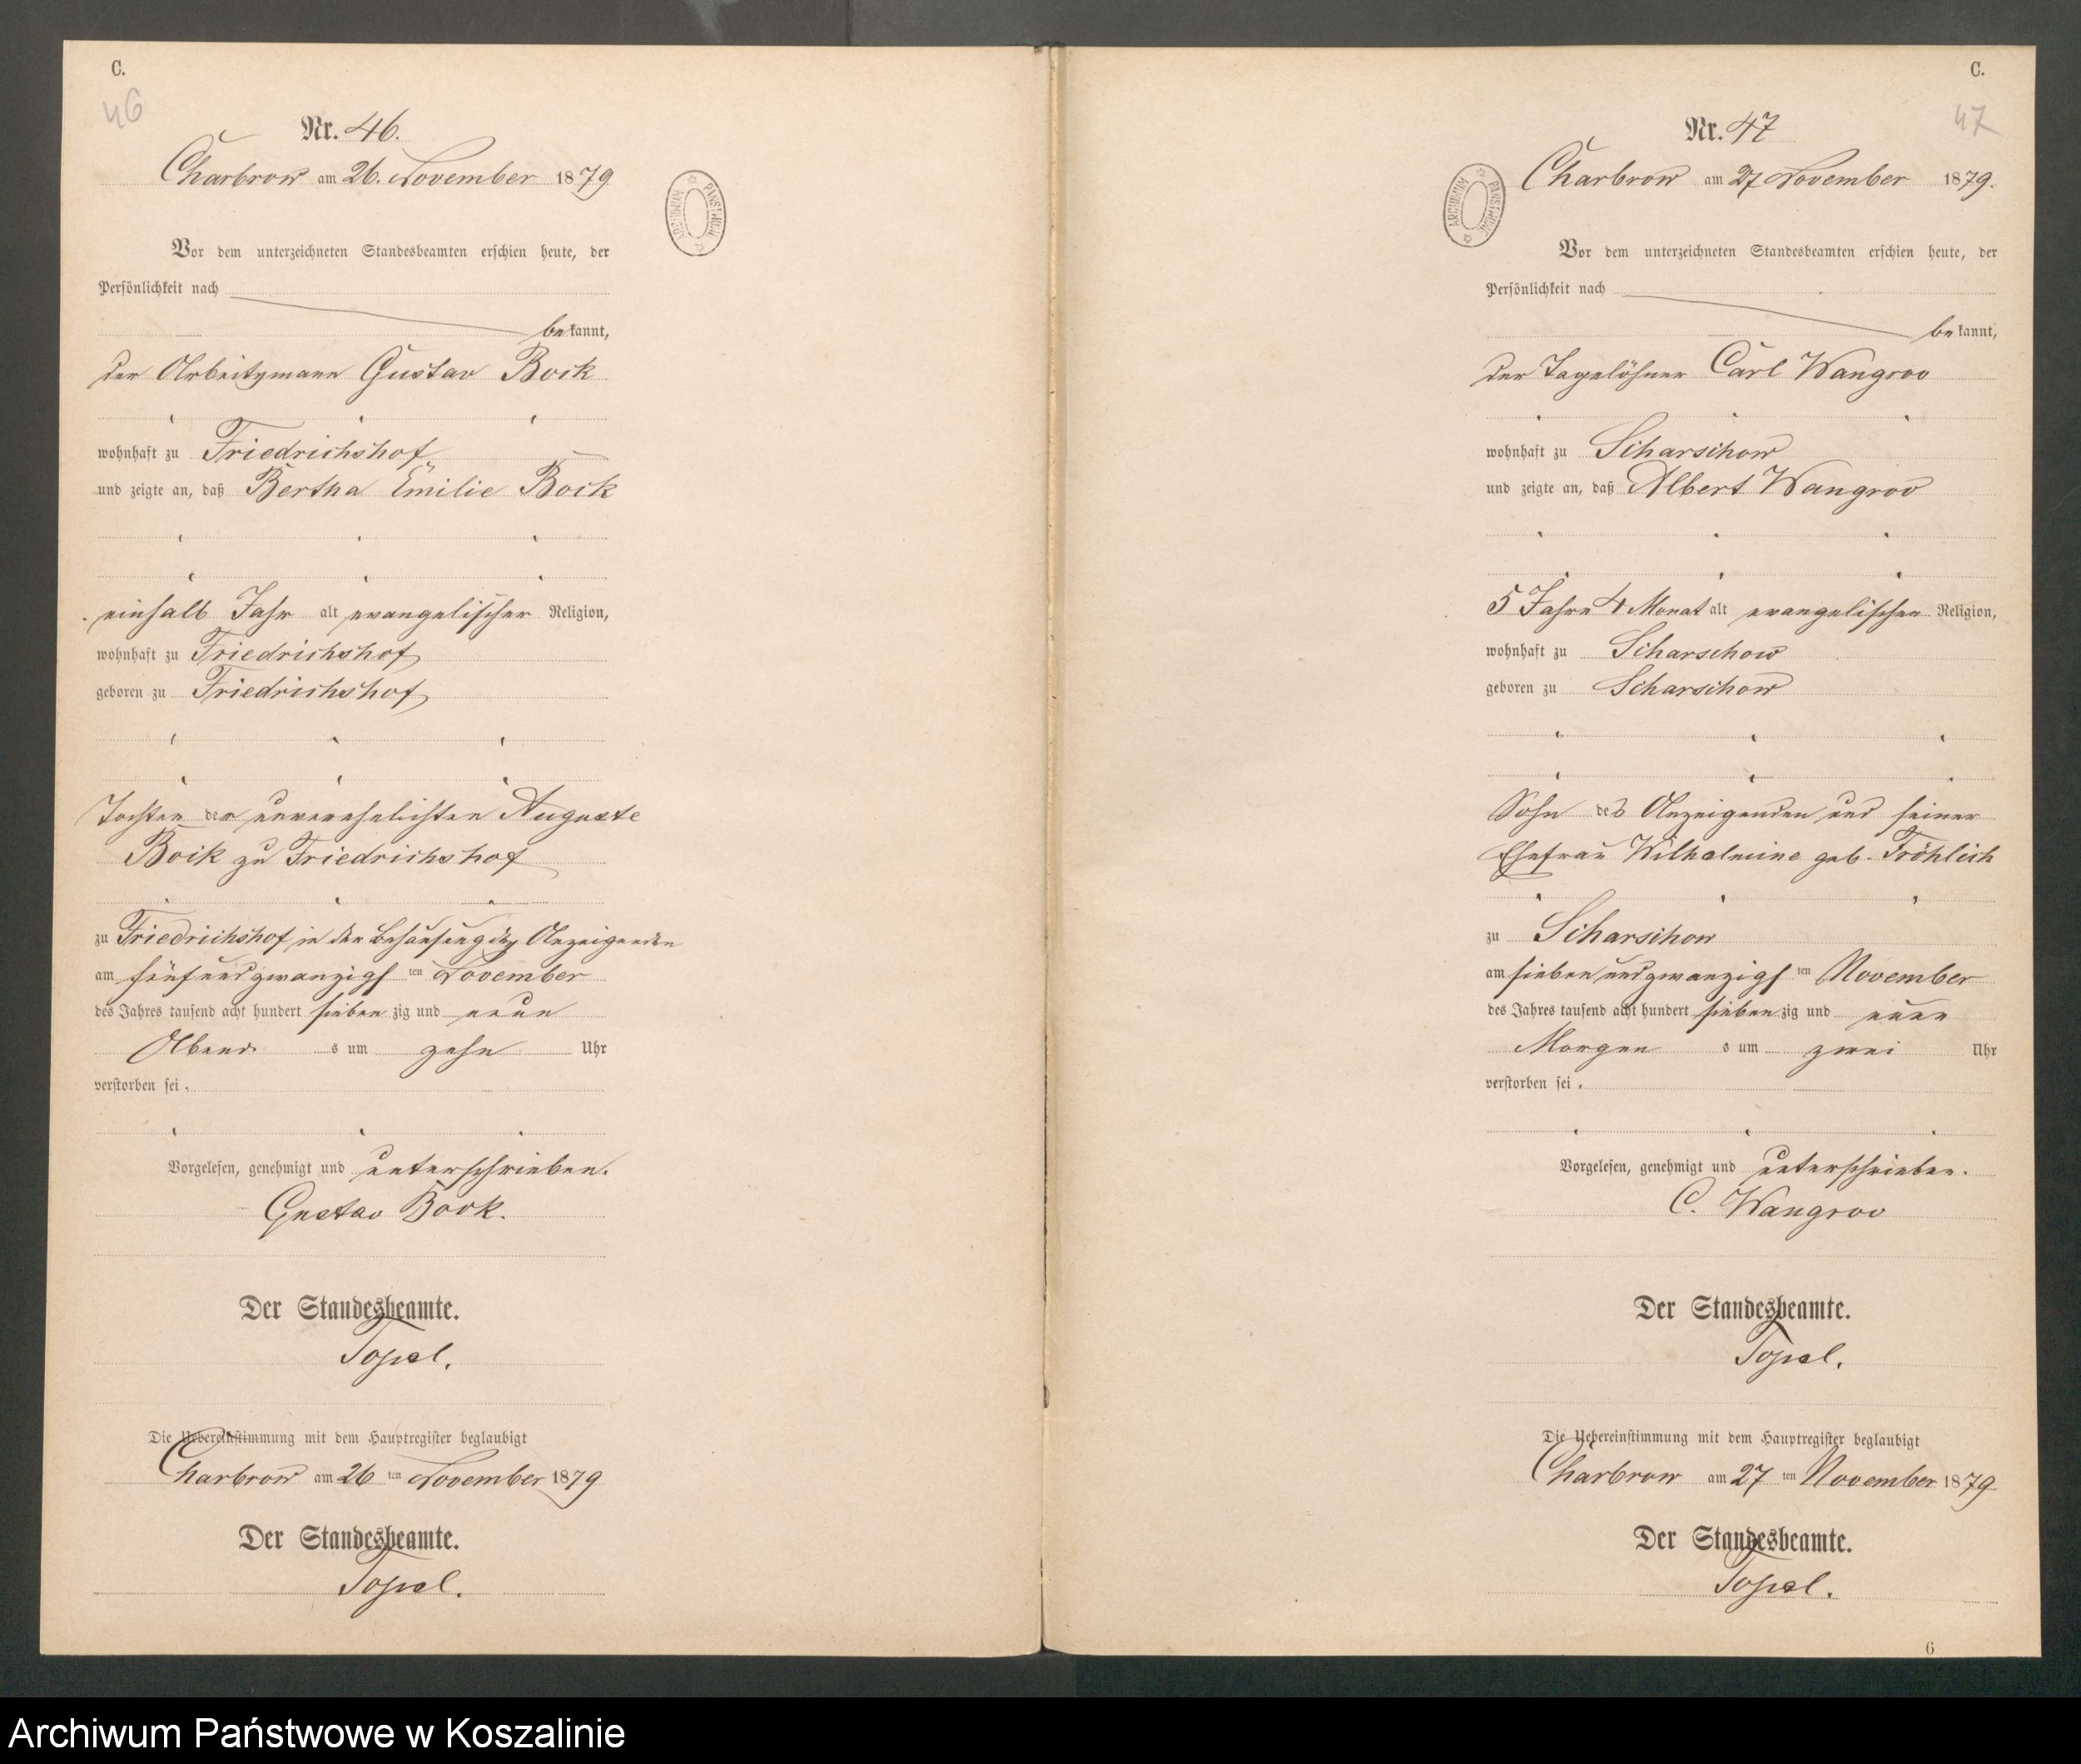 C.
46
Nr. 46.
Charbrow am 26. November 1879
ARCHIWUM PAŃSTWOWE
Vor dem unterzeichneten Standesbeamten erschien heute, der
Persönlichkeit nach
bekannt,
der Arbeitsmann Gustav Bock
wohnhaft zu Friedrichshof
und zeigte an, daß Bertha Emilie Bock
einhalb Jahr alt evangelischer Religion,
wohnhaft zu Friedrichshof
geboren zu Friedrichshof
Tochter der unverehelichten Auguste
Bock zu Friedrichshof
zu Friedrichshof in der Behausung des Anzeigenden
am fünfundzwanzigsten November
des Jahres tausend acht hundert siebenzig und neun
Abends um zehn Uhr
verstorben sei.
Vorgelesen, genehmigt und unterschrieben.
Gustav Bock.
Der Standesbeamte.
Topel.
Die Uebereinstimmung mit dem Hauptregister beglaubigt
Charbrow am 26 ten November 1879
Der Standesbeamte.
Topel.
C.
47
Nr. 47
Charbrow am 27 November 1879.
ARCHIWUM PAŃSTWOWE
Vor dem unterzeichneten Standesbeamten erschien heute, der
Persönlichkeit nach
bekannt,
der Tagelöhner Carl Wangroo
wohnhaft zu Scharschow
und zeigte an, daß Albert Wangroo
5 Jahre 4 Monat alt evangelischer Religion,
wohnhaft zu Scharschow
geboren zu Scharschow
Sohn des Anzeigenden und seiner
Ehefrau Wilhelmine geb. Fröhlich
zu Scharschow
am siebenundzwanzigsten November
des Jahres tausend acht hundert siebenzig und neun
Morgens um zwei Uhr
verstorben sei.
Vorgelesen, genehmigt und unterschrieben.
C. Wangroo
Der Standesbeamte.
Topel.
Die Uebereinstimmung mit dem Hauptregister beglaubigt
Charbrow am 27 ten November 1879
Der Standesbeamte.
Topel.
6
Archiwum Państwowe w Koszalinie